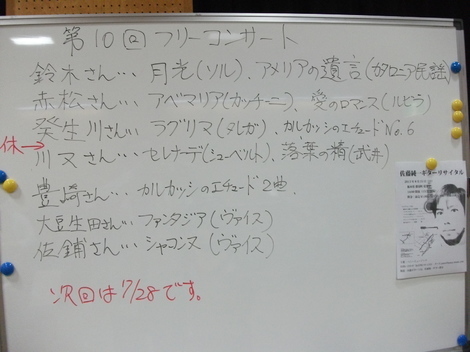 第10回フリーコンサート
鈴木さん… 月光(ソル)、アメリアの遺言(カタロニア民謡)
赤松さん… アベマリア(カッチーニ)、愛のロマンス(ルビラ)
癸生川さん… ラグリマ(タレガ)、カルカッシのエチュードNo.6
休→
川又さん… セレナーデ(シューベルト)、落葉の精(武井)
豊崎さん… カルカッシのエチュード2曲
大豆生田さん… ファンタジア(ヴァイス)
佐鋪さん… シャコンヌ(ヴァイス)
次回は7/28です。
佐藤純一ギターリサイタル